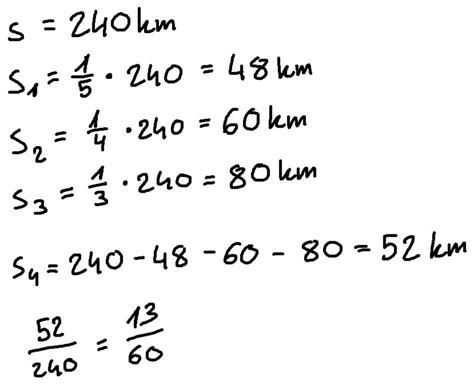 s = 240 km
s₁ = 1/5 · 240 = 48 km
s₂ = 1/4 · 240 = 60 km
s₃ = 1/3 · 240 = 80 km
s₄ = 240 - 48 - 60 - 80 = 52 km
52/240 = 13/60